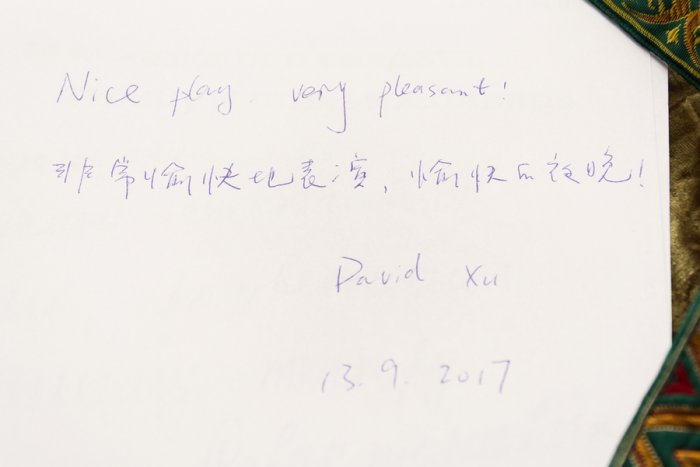 Nice play. very pleasant!
非常愉快地表演, 愉快的夜晚!
David Xu
13.9.2017